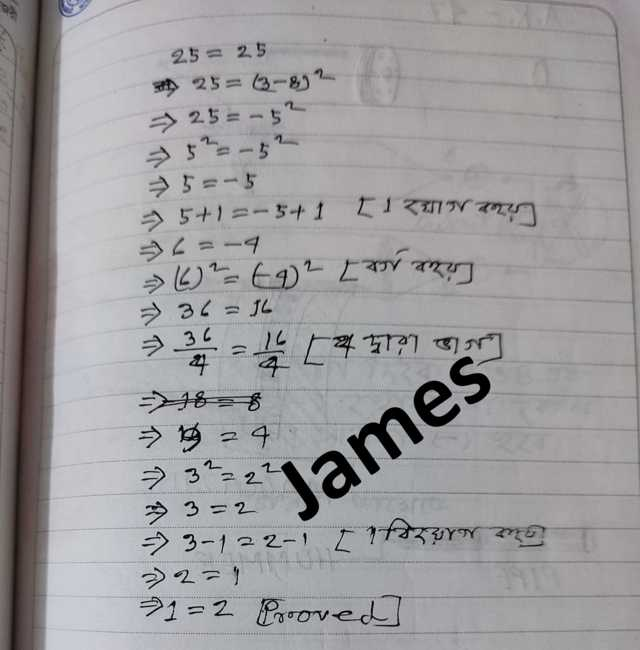 25 = 25
⇒ 25 = (3-8)²
⇒ 25 = -5²
⇒ 5² = -5²
⇒ 5 = -5
⇒ 5+1 = -5+1 [1 যোগ করে]
⇒ 6 = -4
⇒ (6)² = (-4)² [বর্গ করে]
⇒ 36 = 16
⇒ 36/4 = 16/4 [4 দ্বারা ভাগ]
⇒ 18 = 8
⇒ 9 = 4
⇒ 3² = 2²
⇒ 3 = 2
⇒ 3-1 = 2-1 [1 বিয়োগ করে]
⇒ 2 = 1
⇒ 1 = 2 [Prooved]
James